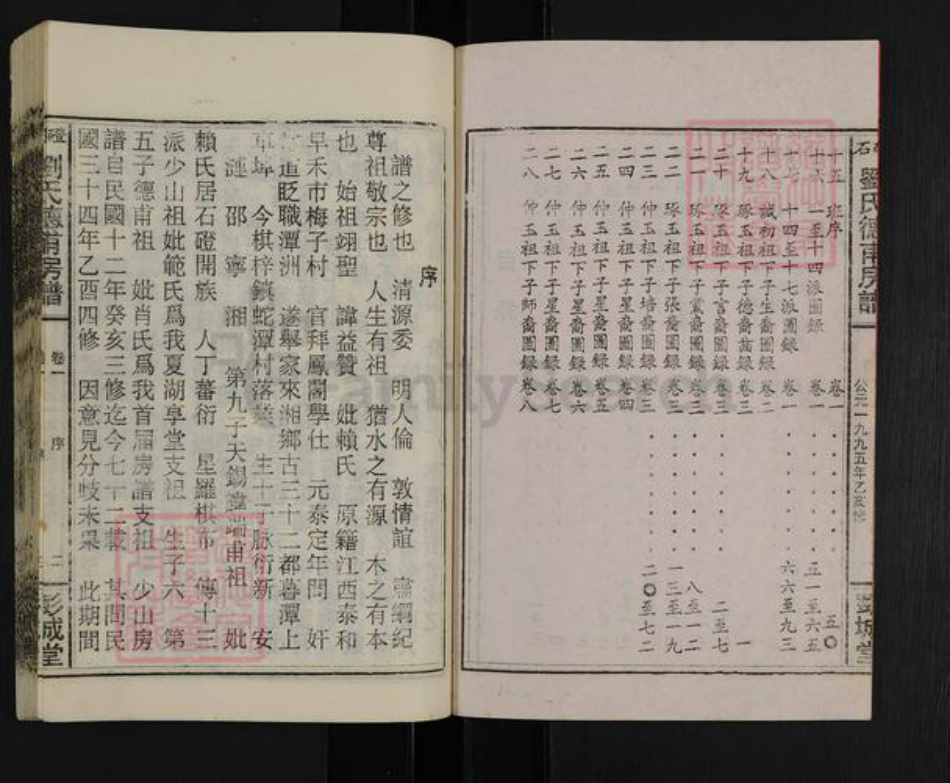 石
劉氏德甫房譜
公元一九九五年乙亥修
彭城堂
十五 班序 卷一 五〇
十六 一至十四派圖錄 卷一 五一至六五
十七 十四至十七派圖錄 卷一 六六至九三
十八 誠初祖下子生裔圖錄 卷二
十九 琢玉祖下子德裔圖錄 卷三 一
二十 琢玉祖下子言裔圖錄 卷三 二至七
二一 琢玉祖下子 裔圖錄 卷三 八至一二
二二 琢玉祖下子張裔圖錄 卷三 一三至一九
二三 仲玉祖下子培裔圖錄 卷三 二〇至七二
二四 仲玉祖下子星裔圖錄 卷四
二五 仲玉祖下子星裔圖錄 卷五
二六 仲玉祖下子星裔圖錄 卷六
二七 仲玉祖下子星裔圖錄 卷七
二八 仲玉祖下子師裔圖錄 卷八
序
譜之修也 清源委 明人倫 敦情誼 肅綱紀
尊祖敬宗也 人生有祖 猶水之有源 木之有本
也 始祖翊聖 諱益贊 妣賴氏 原籍江西泰和
早禾市梅子村 官拜鳳閣學仕 元泰定年間 奸
道貶職潭洲 遂舉家來湘鄉古三十二都暮潭上
草坪 今棋梓鎮蛇潭村落業 生十子脉衍新 安
漣 邵 寧 湘 第九子天錫諱端甫祖 妣
賴氏居石磴開族 人丁蕃衍 星羅棋布 傳十三
派少山祖妣範氏爲我夏湖享堂支祖 生子六 第
五子德甫祖 妣肖氏爲我首届房譜支祖 少山房
譜自民國十二年癸亥三修迄今七十二載 其間民
國三十四年乙酉四修 因意見分歧未果 此期間
磴
劉氏德甫房譜
卷一 序
二
彭城堂